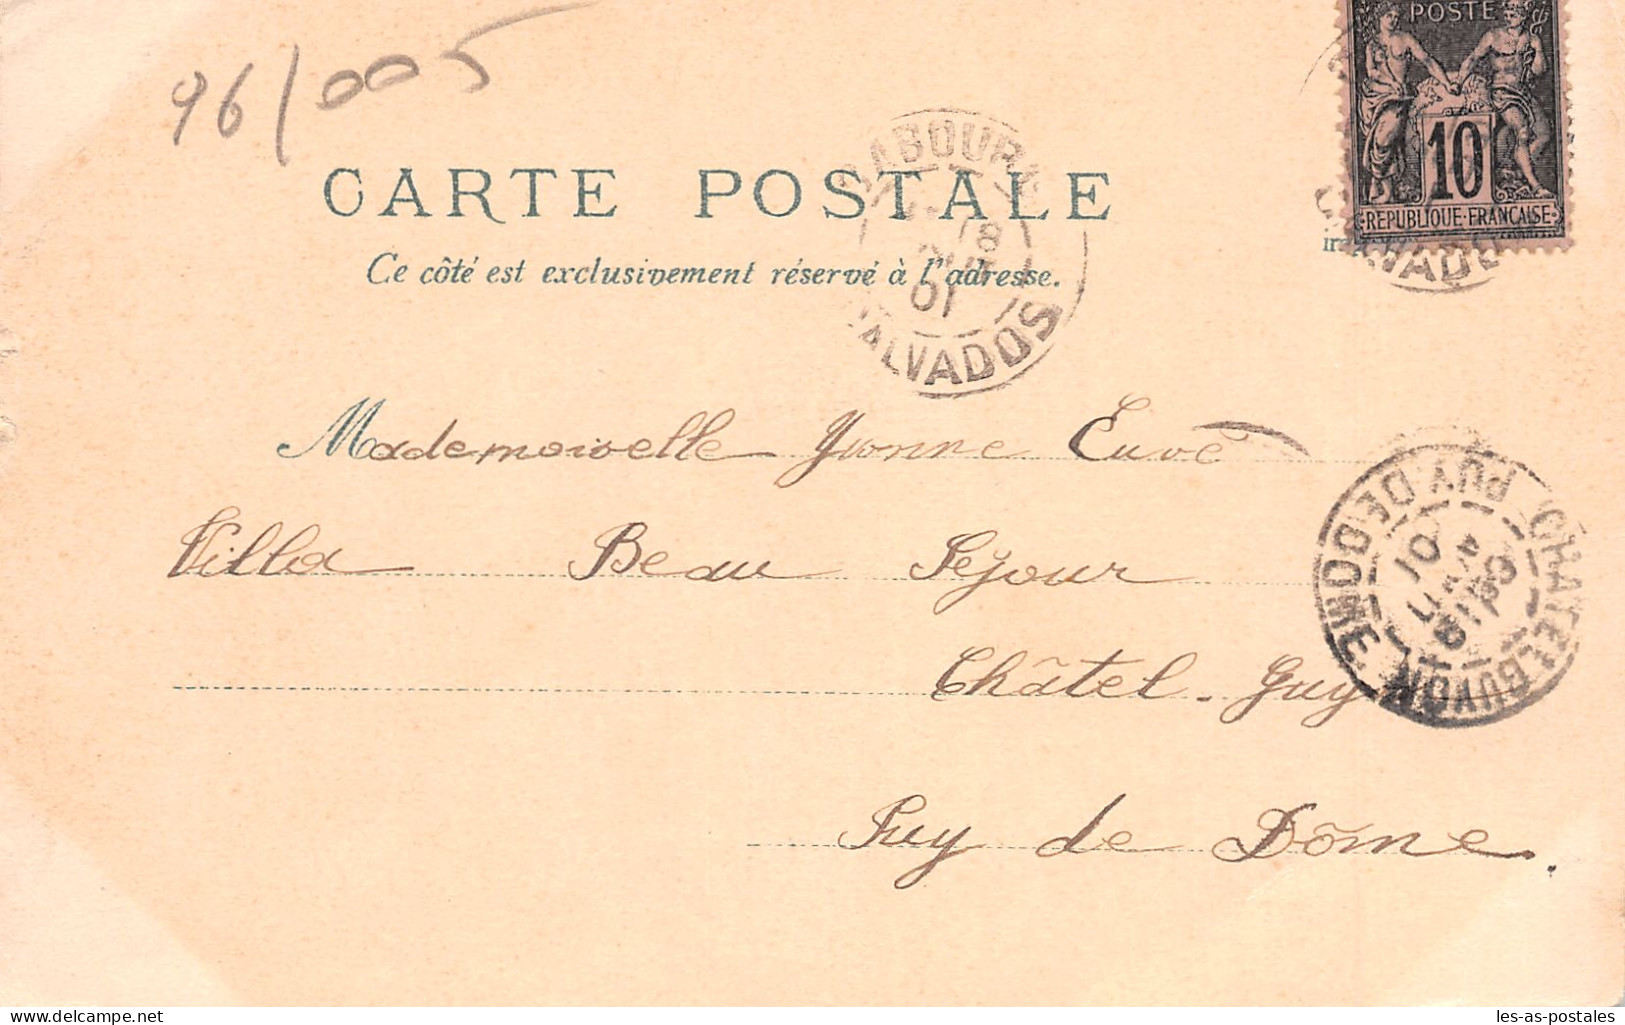 96/005
POSTE
10
REPUBLIQUE·FRANÇAISE
CALVADOS
CARTE POSTALE
Ce côté est exclusivement réservé à l'adresse.
CABOURG
8
01
CALVADOS
Mademoiselle Yvonne Euvé
Villa Beau Séjour
Châtel-Guy
Puy de Dôme.
CHATELGUYON
PUY DE DOME
01
les-as-postales